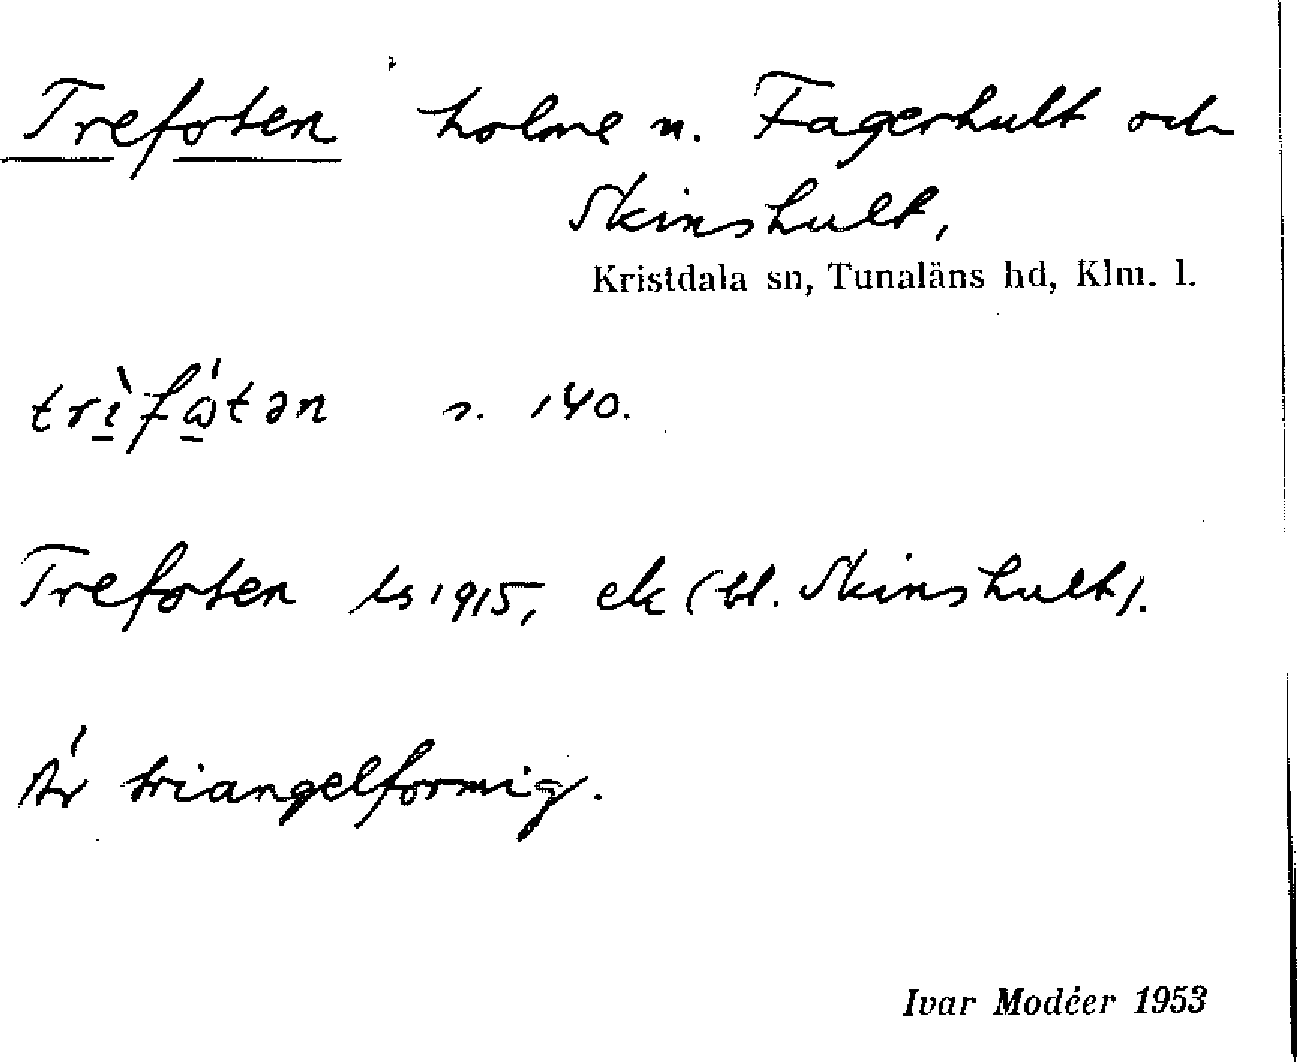 Trefoten holme n. Fagerhult och
Skinshult,
Kristdala sn, Tunaläns hd, Klm. l.
trìfώtən s. 140.
Trefoten ls 1915, ek (bl. Skinshult).
Är triangelformig.
Ivar Modéer 1953